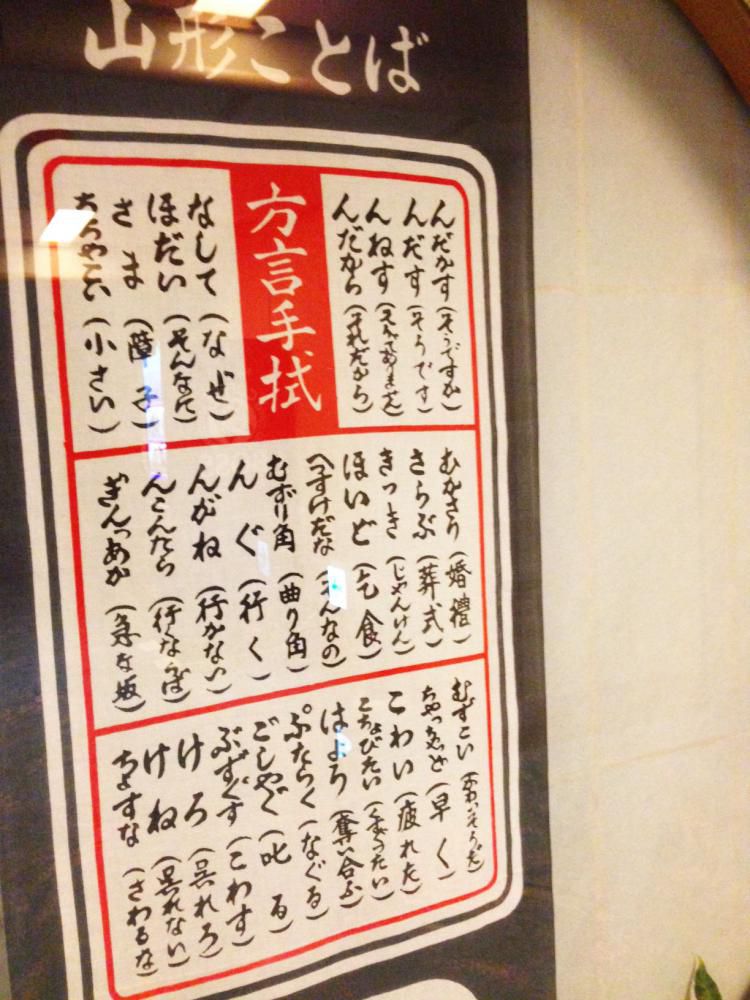 山形ことば
んだがす(そうですか)
んだす(そうです)
んねす(そうでありません)
んだから(それだから)
方言手拭
なして(なぜ)
ほだい(そんなに)
さま(障子)
ちちゃこい(小さい)
むがさり(婚禮)
さらぶ(葬式)
きっき(じゃんけん)
ほいど(乞食)
へすけだな(そんなの)
むずり角(曲り角)
んぐ(行く)
んがね(行かない)
んこんたら(行くならば)
ぎんつあか(急な坂)
むずこい(かわいそうだ)
ちゃっちゃど(早く)
こわい(疲れた)
こちょびたい(くすぐったい)
はよろ(奪い合ふ)
ぷたらく(なぐる)
ごしゃぐ(叱る)
ぶずぐす(こわす)
けろ(呉れろ)
けね(呉れない)
ちょすな(さわるな)